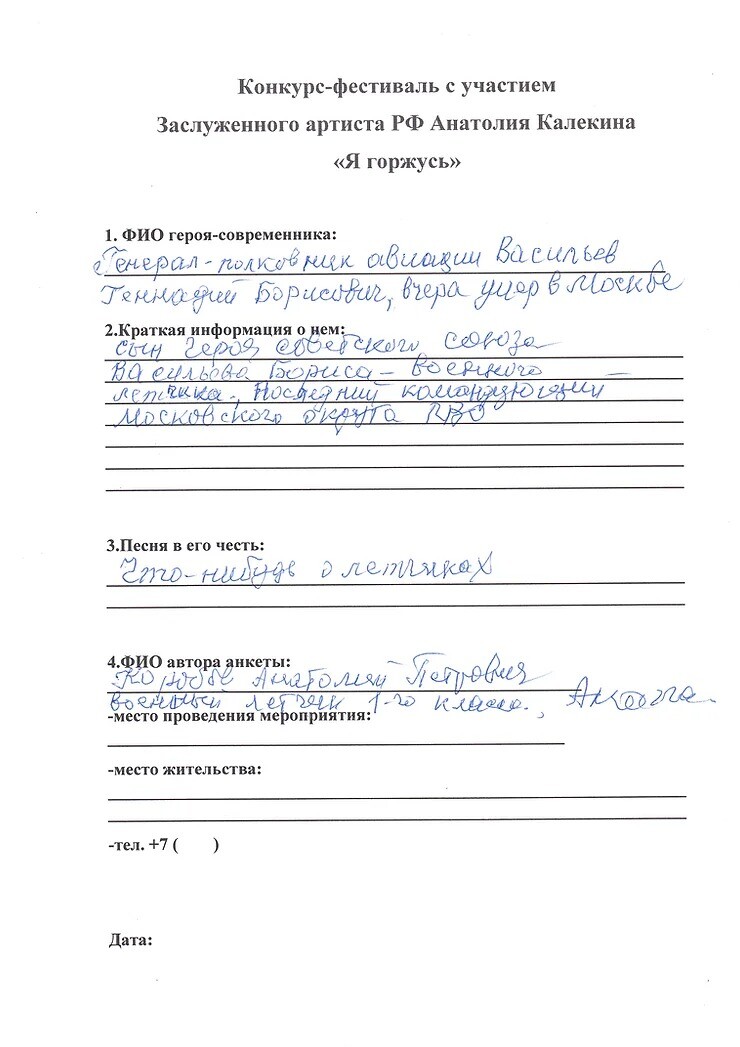 Конкурс-фестиваль с участием
Заслуженного артиста РФ Анатолия Калекина
«Я горжусь»
1. ФИО героя-современника:
Генерал-полковник авиации Васильев
Геннадий Борисович, вчера умер в Москве
2.Краткая информация о нем:
сын героя советского союза
Васильева Бориса - военного
летчика. Последний командующий
Московского округа ПВО
3.Песня в его честь:
Что-нибудь о летчиках
4.ФИО автора анкеты:
Анатолий Петрович
военный летчик 1-го класса.,
-место проведения мероприятия:
-место жительства:
-тел. +7 ( )
Дата: